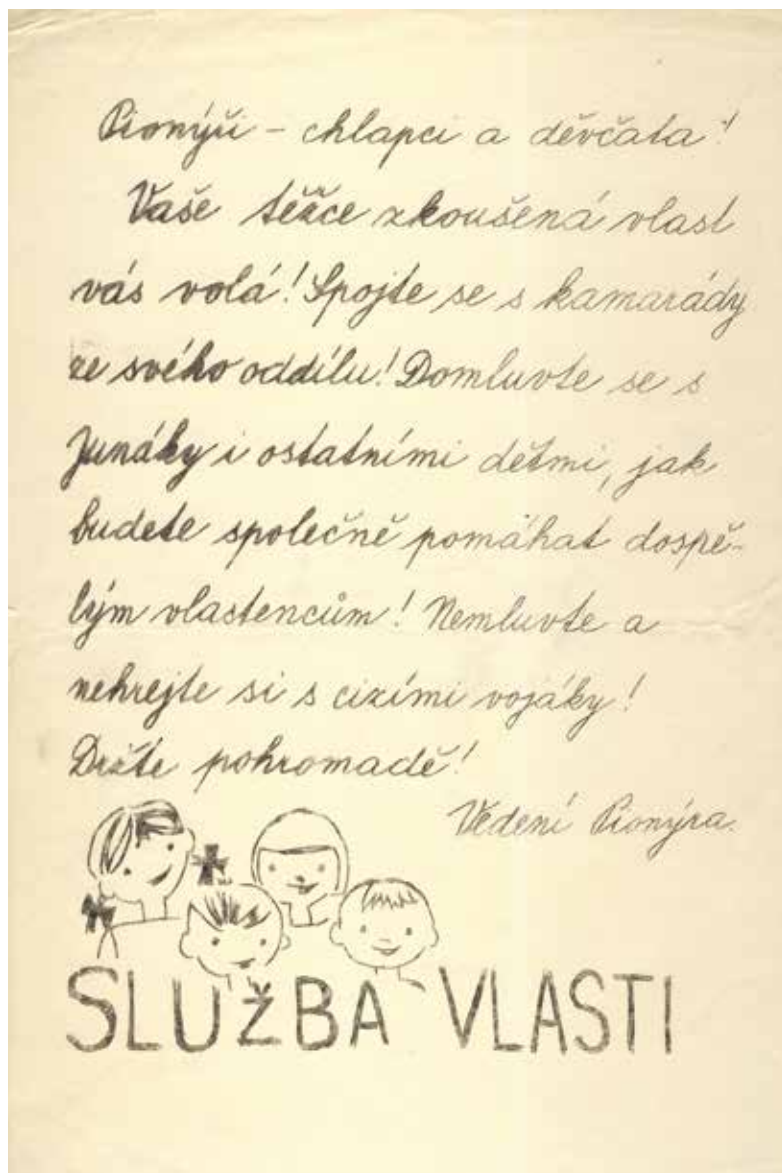 Pionýři - chlapci a děvčata!
Vaše těžce zkoušená vlast
vás volá! Spojte se s kamarády
ze svého oddílu! Domluvte se s
Junáky i ostatními dětmi, jak
budete společně pomáhat dospě-
lým vlastencům! Nemluvte a
nehrejte si s cizími vojáky!
Držte pohromadě!
Vedení Pionýra.
SLUŽBA VLASTI